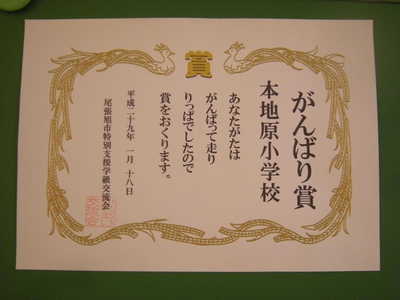 賞
がんばり賞
本地原小学校
あなたがたは
がんばって走り
りっぱでしたので
賞をおくります。
平成二十九年 一月 十八日
尾張旭市特別支援学級交流会